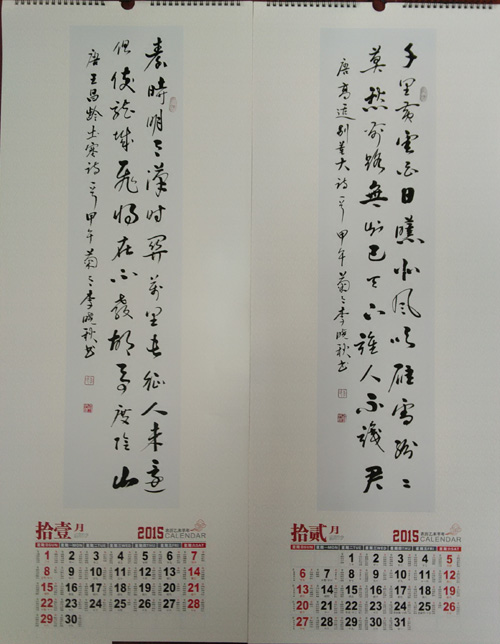 秦時明月漢時關萬里長征人未還
但使龍城飛將在不教胡馬度陰山
唐王昌齡出塞詩一首甲午菊月李曉秋書
拾壹月
2015
CALENDAR
1 2 3 4 5 6 7
8 9 10 11 12 13 14
15 16 17 18 19 20 21
22 23 24 25 26 27 28
29 30
千里黃雲白日曛北風吹雁雪紛〻
莫愁前路無知己天下誰人不識君
唐高適別董大詩一首甲午菊月李曉秋書
拾贰月
2015
CALENDAR
1 2 3 4 5
6 7 8 9 10 11 12
13 14 15 16 17 18 19
20 21 22 23 24 25 26
27 28 29 30 31